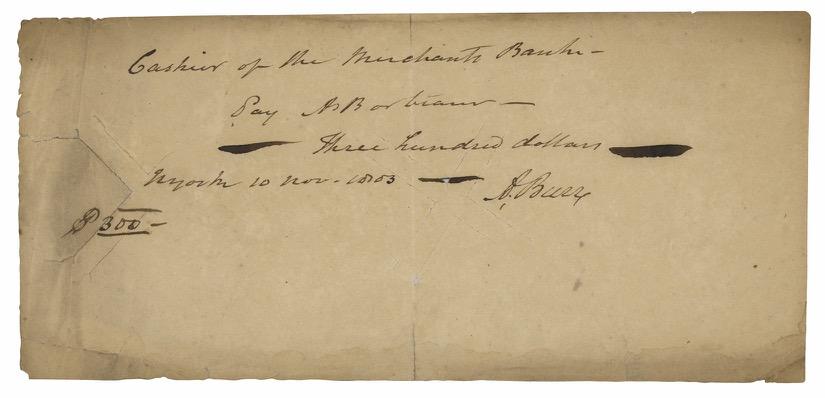 Cashier of the Merchants Bank -
Pay AB or bearer —
Three hundred dollars
Nyork 10 Nov. 1803 — A. Burr
$ 300 -